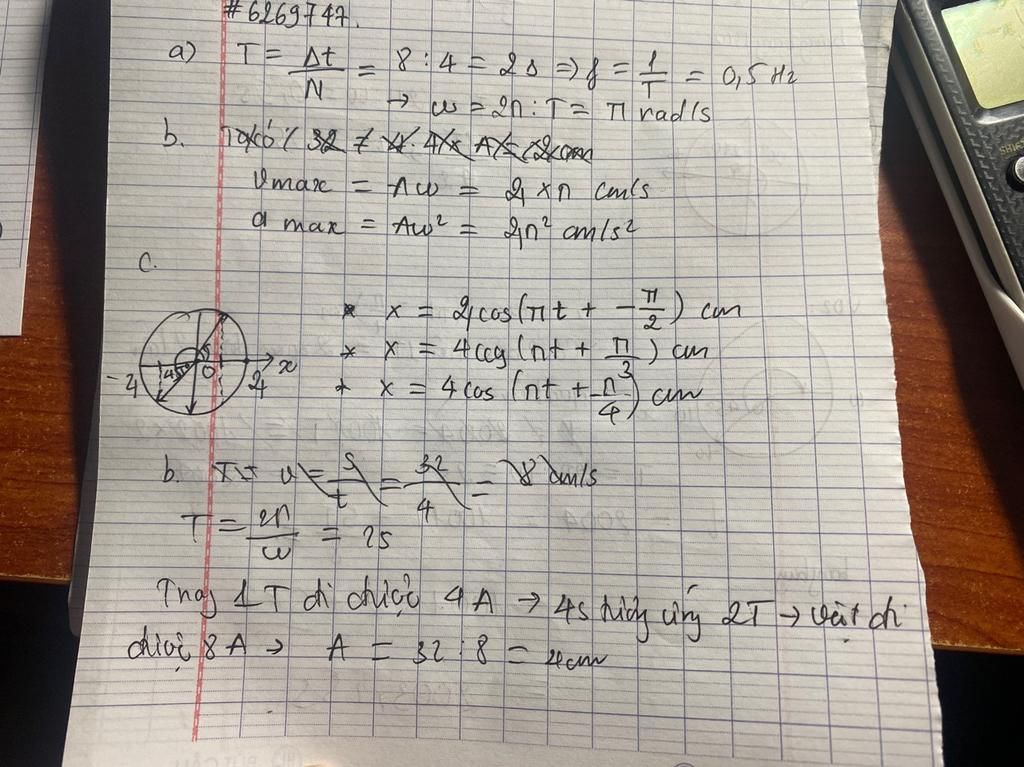 #6269747.
a) T = Δt/N = 8 : 4 = 2s ⇒ f = 1/T = 0,5 Hz
→ ω = 2π : T = π rad/s
b.
vmax = Aω = 4 × π cm/s
a max = Aω² = 4π² cm/s²
c.
* x = 4cos(πt + -π/2) cm
* x = 4cos(πt + π/3) cm
* x = 4cos(πt + -3π/4) cm
-4 O 4 x
b. T = v = s/t = 32/4 = 8 cm/s
T = 2π/ω = 2s
Trong 1T đi được 4A → 4s tương ứng 2T → vật đi
được 8A → A = 32 : 8 = 4cm